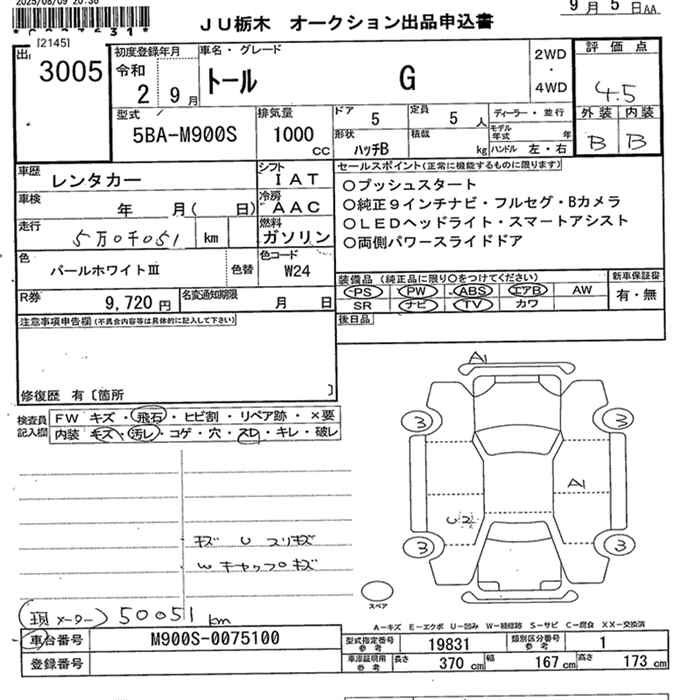 2025/08/09 20:36
9月 5日 AA
[2145]
JU栃木 オークション出品申込書
出
3005
初度登録年月
令和
2 9月
車名・グレード
トール G
2WD
・
4WD
評価点
4.5
外装 内装
B B
型式
5BA-M900S
排気量
1000 cc
ドア
5
定員
5 人
形状
ハッチB
積載
kg
ディーラー・並行
モデル年式 年
ハンドル 左・右
車歴
レンタカー
シフト
IAT
車検
年 月( 日)
冷房
AAC
走行
5万0千051 km
燃料
ガソリン
色
パールホワイトⅢ
色替
色コード
W24
R券
9,720円
名変通知期限
月 日
セールスポイント(正常に機能するものに限ります)
○プッシュスタート
○純正9インチナビ・フルセグ・Bカメラ
○LEDヘッドライト・スマートアシスト
○両側パワースライドドア
装備品(純正品に限り○をつけてください)
PS PW ABS エアB AW
SR ナビ TV カワ
新車保証書
有・無
後日品
注意事項申告欄(不具合内容等は具体的に記入して下さい)
修復歴 有〔箇所 〕
検査員記入欄
FW キズ・飛石・ヒビ割・リペア跡・×要
内装 キズ・汚レ・コゲ・穴・スレ・キレ・破レ
キズ U スリキズ
W キャップキズ
A1
3 3
A1
U2
3 3
スペア
A-キズ E-エクボ U-凹み W-補修跡 S-サビ C-腐食 XX-交換済
(現メーター) 50051 km
車台番号
M900S-0075100
登録番号
型式指定番号 参考
19831
類別区分番号 参考
1
車庫証明用 参考
長さ 370 cm 幅 167 cm 高さ 173 cm